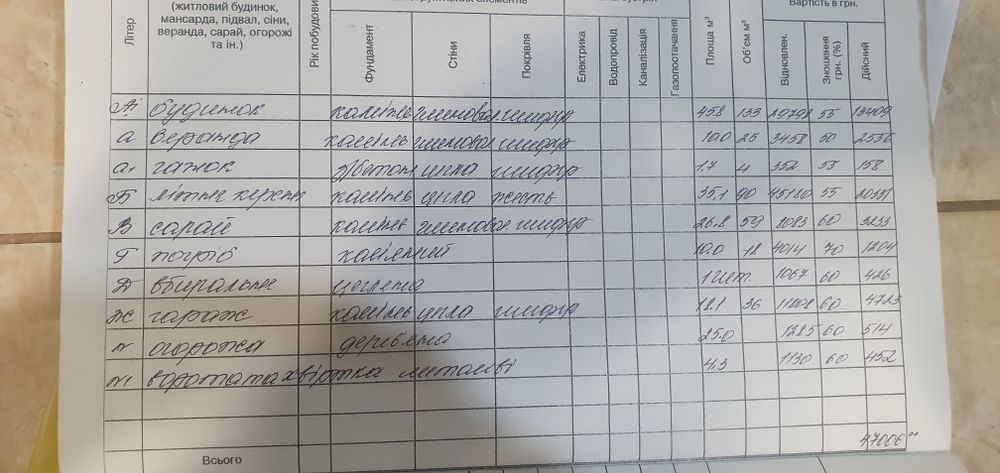 (житловий будинок,
мансарда, підвал, сіни,
веранда, сарай, огорожі
та ін.)
Літер
Рік побудови
Фундамент
Стіни
Покрівля
Електрика
Водопровід
Каналізація
Газопостачання
Площа м²
Об'єм м³
Вартість в грн.
Відновлен.
Зношення грн. (%)
Дійсний
А будинок камінь глинобол шифер 45.8 133 29798 55 13409
а веранда камінь глинобол шифер 10.0 25 3458 50
а₁ ганок з/бетон цегла шифер 1.7 4 352 55 158
Б літня кухня камінь цегла жесть 35.1 90 45180 55
В сарай камінь глинобол шифер 26.8 59 8083 60 3233
Г погріб кам'яний 10.0 18 4014 70 1204
Д вбиральня цегляна 1 шт. 1067 60 426
Ж гараж камінь цегла шифер 18.1 36 60 4723
N огорожа дерев'яна 25.0 1285 60 514
N1 ворота та хвіртка металеві 4.3 1130 60 452
47006 00
Всього